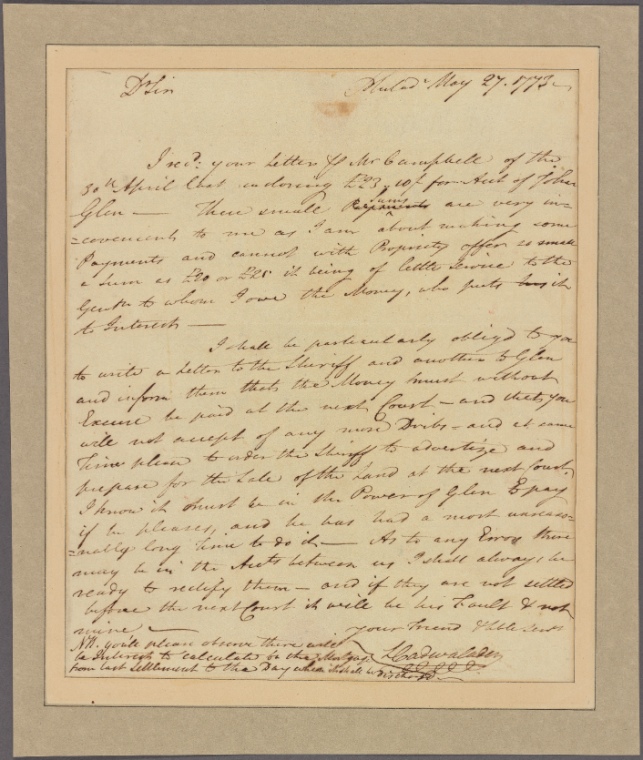 Dr Sir Philad.a May 27. 1773
I recd. your Letter pr Mr Campbell of the
30th April last inclosing £23.10/. for Acct of John
Glen — These small Sums are very in=
=convenient to me as I am about making some
Payments and cannot with Propriety offer so small
a Sum as £20 or £25 it being of little Service to the
Gentn to whom I owe the Money, who puts it
to Interest —
I shall be particularly obligd to you
to write a Letter to the Sheriff and another to Glen
and inform them that the Money must without
Excuse be paid at the next Court — and that you
will not accept of any more Dribs — and at same
Time please to order the Sheriff to advertize and
prepare for the Sale of the Land at the next Court.
I know it must be in the Power of Glen to pay
if he pleases, and he has had a most unreaso=
=nably long Time to do it — As to any Errors there
may be in the Accts between us I shall always be
ready to rectify them — and if they are not settled
before the next Court it will be his Fault & not
mine — your Friend & Hble Servt
Cadwalader
NB. you'll please observe there will
be Interest to calculate on the Mortgage
from last Settlement to the Day when it shall be dischargd.